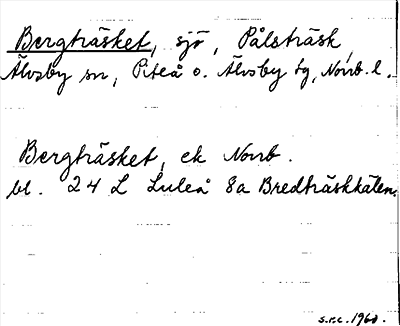 Bergträsket, sjö, Pålsträsk,
Älvsby sn, Piteå o. Älvsby tg, Norrb. l.
Bergträsket, ek Norrb.
bl. 24 L Luleå 8a Bredträskkälen.
s.r.c. 1960.